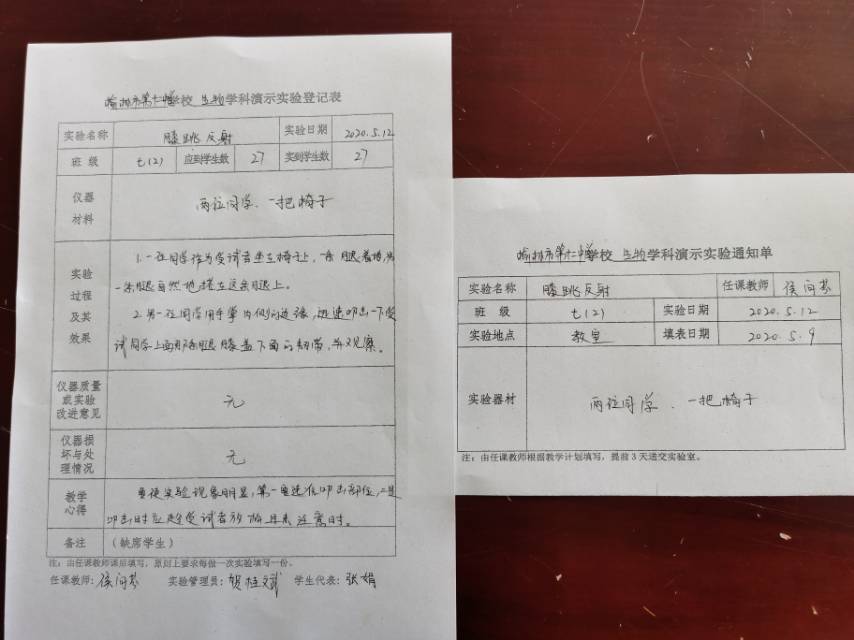 榆林市第十二中学校 生物学科演示实验登记表
实验名称 膝跳反射 实验日期 2020.5.12
班 级 七(2) 应到学生数 27 实到学生数 27
仪器材料 两位同学、一把椅子
实验过程及其效果
1.一位同学作为受试者坐在椅子上,一条腿着地,另
一条腿自然地搭在这条腿上。
2.另一位同学用手掌内侧的边缘,迅速叩击一下受
试同学上面那条腿膝盖下面的韧带,并观察。
仪器质量或实验改进意见 无
仪器损坏与处理情况 无
教学心得
要使实验现象明显,第一要选准叩击部位,二是
叩击时应趁受试者放松且未注意时。
备注 (缺席学生)
注:由任课教师课后填写,原则上要求每做一次实验填写一份。
任课教师: 侯向 实验管理员: 学生代表:张娟
榆林市第十二中学校 生物学科演示实验通知单
实验名称 膝跳反射 任课教师 侯向
班 级 七(2) 实验日期 2020.5.12
实验地点 教室 填表日期 2020.5.9
实验器材 两位同学、一把椅子
注:由任课教师根据教学计划填写,提前3天送交实验室。